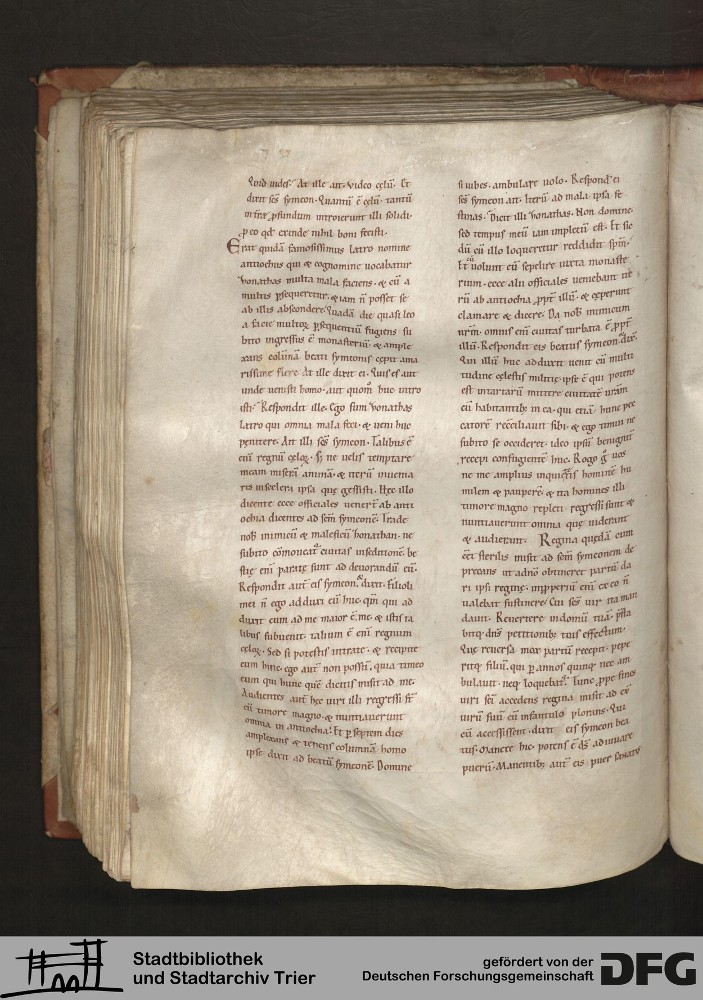 Quid uides? At ille ait. Video cęlū. Et
dixit scs̄ symeon. Quantū ē cęlū. tantū
in trā ꝓfundum introierunt illi solidi.
ꝓ eo qd̓ exinde nihil boni fecisti.
Erat quidā famosissimus latro nomine
antiochus qui & cognomine uocabatur
Ionathas multa mala faciens. & cū a
multis ꝑsequeretur. & iam n̄ posset se
ab illis abscondere. Quadā die quasi leo
a facie multoꝝ ꝑsequentiū fugiens su
bito ingressus ē monasteriū. & ample
xans colūnā beati symeonis cępit ama
rissime flere. At ille dixit ei. Quis es aut
unde uenisti homo. aut quom̄ huc intro
isti? Respondit ille. Ego sum Ionathas
latro qui omnia mala feci. & ueni huc
penitere. Ait illi scs̄ symeon. Talibus ē
enī regnū cęloꝝ. Sꝫ ne uelis temptare
meam miserā animā. & iterū inuenia
ris in scelera ipsa quę gessisti. Hęc illo
dicente ecce officiales uener̄t ab anti
ochia dicentes ad scm̄ symeonē. Trade
nob̄ inimicū & maleficū Ionathan. ne
subito cōmoueat̄ ciuitas in seditionē. be
stię enī paratę sunt ad deuorandū eū.
Respondit aut̄ eis symeon. & dixit. Filioli
mei n̄ ego adduxi eū huc. qm̄ qui ad
duxit eum ad me maior ē me. & istis ta
libus subuenit. talium ē enī regnum
cęloꝝ. Sed si potestis intrate. & recipite
eum hinc. ego aut̄ non possū. quia timeo
eum qui hunc quē dicitis misit ad me.
Audientes aut̄ hęc uiri illi regressi st̄
cū timore magno. & nuntiauerunt
omnia in antiochia. Et ꝑ septem dies
amplexans & tenens columnā homo
ipse dixit ad beatū symeonē. Domine
si iubes. ambulare uolo. Respond̄ ei
scs̄ symeon ait. Iterū ad mala ipsa fe
stinas. Dicit illi Ionathas. Non domine.
sed tempus meū iam impletū est. Et sic
dū cū illo loqueretur reddidit spm̄.
Et cū uolunt eū sepelire iuxta monaste
rium. ecce alii officiales ueniebant
rū ab antiochia ꝓpt̄ illū. & cęperunt
clamare & dicere. Da nob̄ inimicum
nr̄m. omnis enī ciuitas turbata ē ꝓpt̄
illū. Respondit eis beatus symeon. & dix̄.
Qui illū huc adduxit uenit cū multi
tudine cęlestis militię. ipse ē qui potens
est in tartarū mittere ciuitatē urām
cū habitantibꝫ in ea. qui etiā hunc pec
catorē reconciliauit sibi. & ego timui ne
subito se occideret. ideo ipsū benignū
recepi confugientē huc. Rogo g̊ uos
ne me amplius inquietis hominē hu
milem & pauperē. & ita homines illi
timore magno repleti regressi sunt &
nuntiauerunt omnia quę uiderunt
& audierunt. Regina quędā cum
eēt sterilis misit ad scm̄ symeonem de
precans ut a dn̄o obtineret partū da
ri ipsi reginę. impperiū enī ex eo n̄
ualebat sustinere. Cui scs̄ uir ita man
dauit. Reuertere in domū tuā. p̄sta
bitqꝫ dn̄s petitionibꝫ tuis effectum.
Quę reuersa mox partū recepit. pepe
ritqꝫ filiū. qui ꝑ annos quinqꝫ nec am
bulauit. neqꝫ loquebat̄. Tunc ꝓpe fines
uiri sc̄i accedens regina misit ad eū
uirū suū cū infantulo plorans. Qui
cū accessissent. dixit eis symeon bea
tus. Manete hic. potens ē ds̄ adiuuare
puerū. Manentibꝫ aut̄ eis puer sanatꝰ
Stadtbibliothek
und Stadtarchiv Trier
gefördert von der
Deutschen Forschungsgemeinschaft
DFG